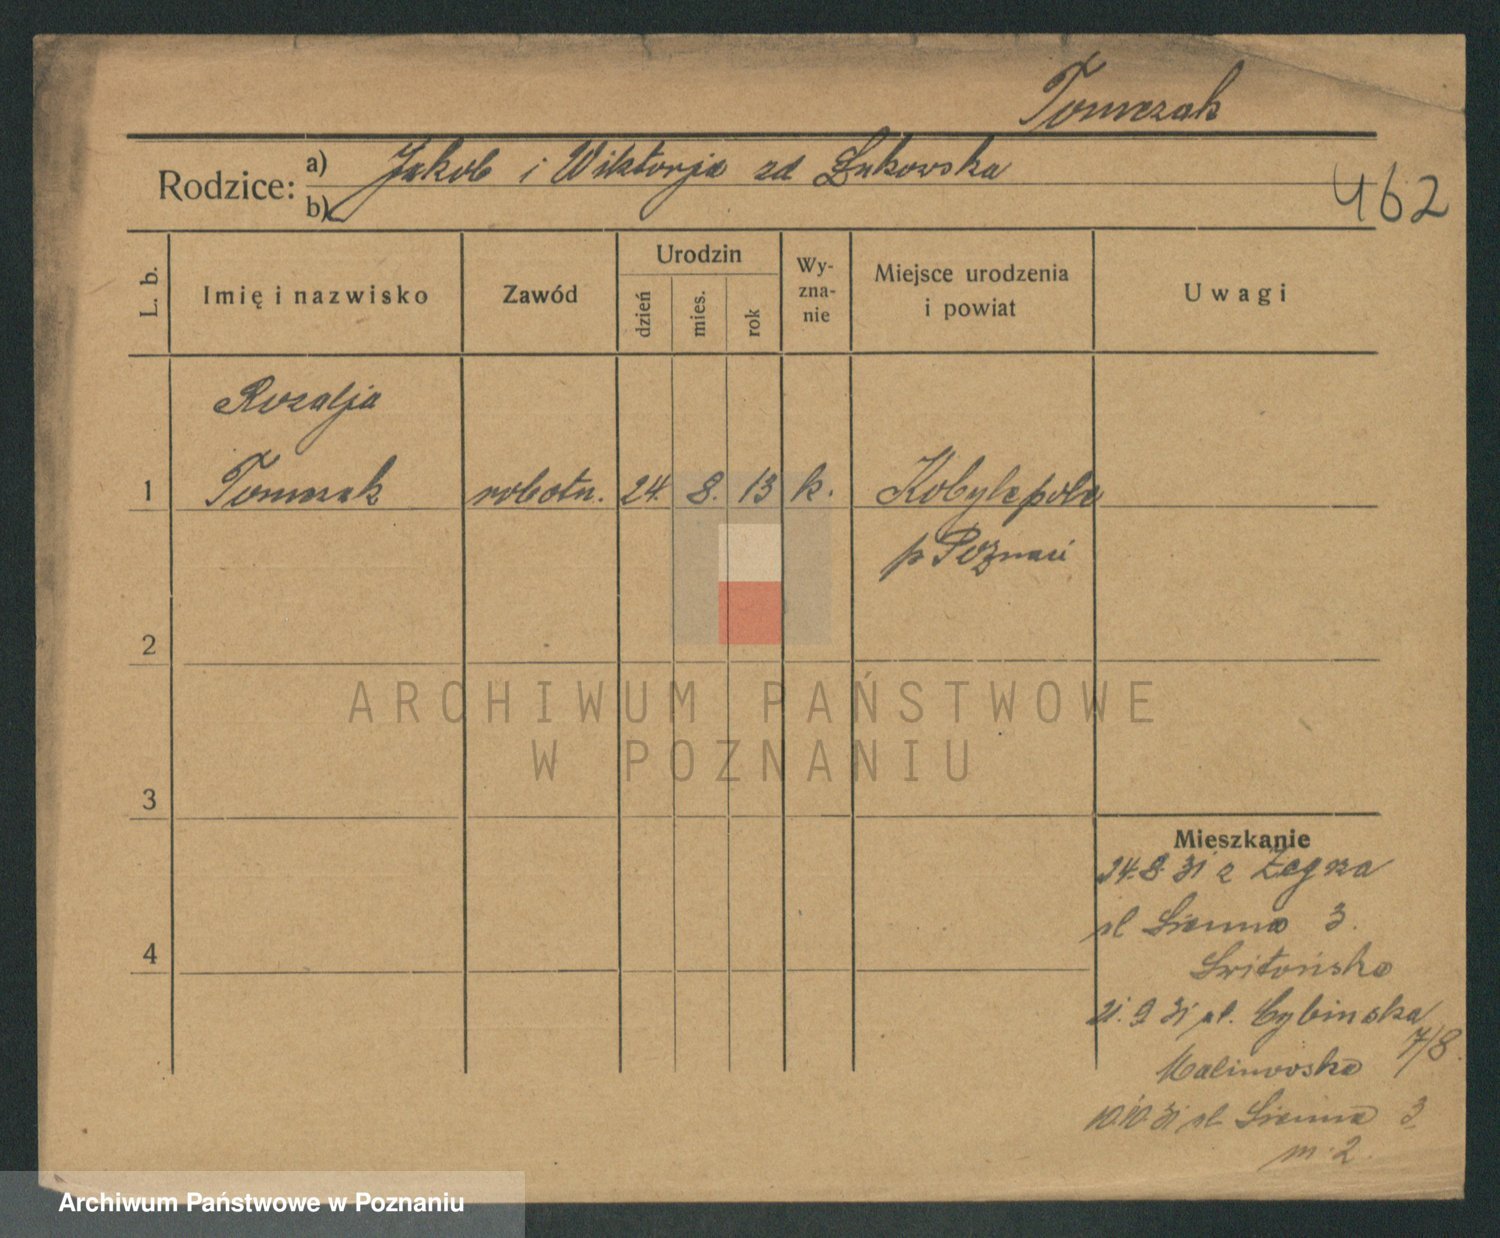 Tomczak
Rodzice: a) Jakob i Wiktorja zd Łukowska
b)
462
L. b.
Imię i nazwisko
Zawód
Urodzin
dzień
mies.
rok
Wy-
zna-
nie
Miejsce urodzenia
i powiat
Uwagi
Rozalja
1 Tomczak robotn. 24. 8. 13 k. Kobylepole
p Poznań
2
3
4
Mieszkanie
24.8 31 z Zegrza
ul Sienna 3.
21. 9 31 ul. Cybinska
7/8
Malinowska
10.10 31 ul Sienna 3
m. 2.
ARCHIWUM PAŃSTWOWE
W POZNANIU
Archiwum Państwowe w Poznaniu